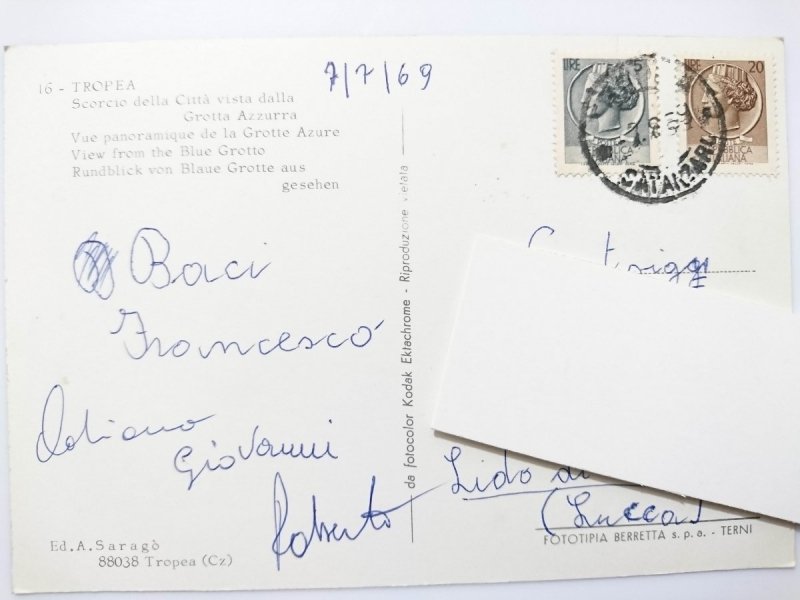 16 - TROPEA
Scorcio della Città vista dalla
Grotta Azzurra
Vue panoramique de la Grotte Azure
View from the Blue Grotto
Rundblick von Blaue Grotte aus
gesehen
7/7/69
LIRE 5
LIRE 20
REPUBBLICA
ITALIANA
Baci
Francesco
Adriano
Giovanni
Roberto
da fotocolor Kodak Ektachrome - Riproduzione vietata
Lido di
(Lucca)
Ed. A. Saragò
88038 Tropea (Cz)
FOTOTIPIA BERRETTA s.p.a. - TERNI